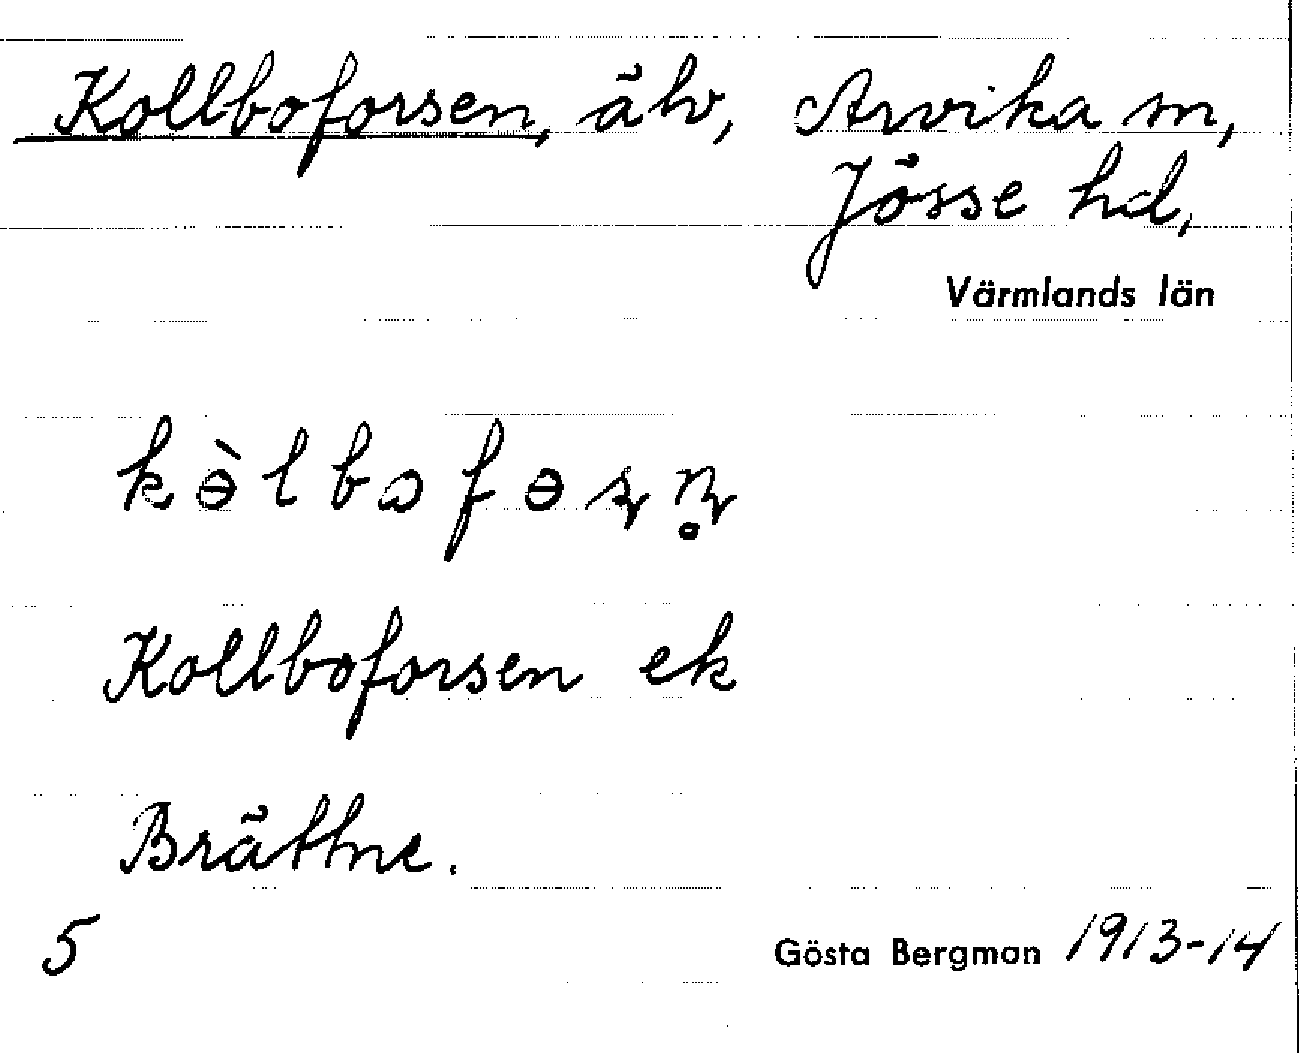 Kollboforsen, älv, Arvika sn,
Jösse hd,
Värmlands län
kɵ̀lbɔfɵʂɳ̥
Kollboforsen ek
Brättne.
5 Gösta Bergman 1913-14